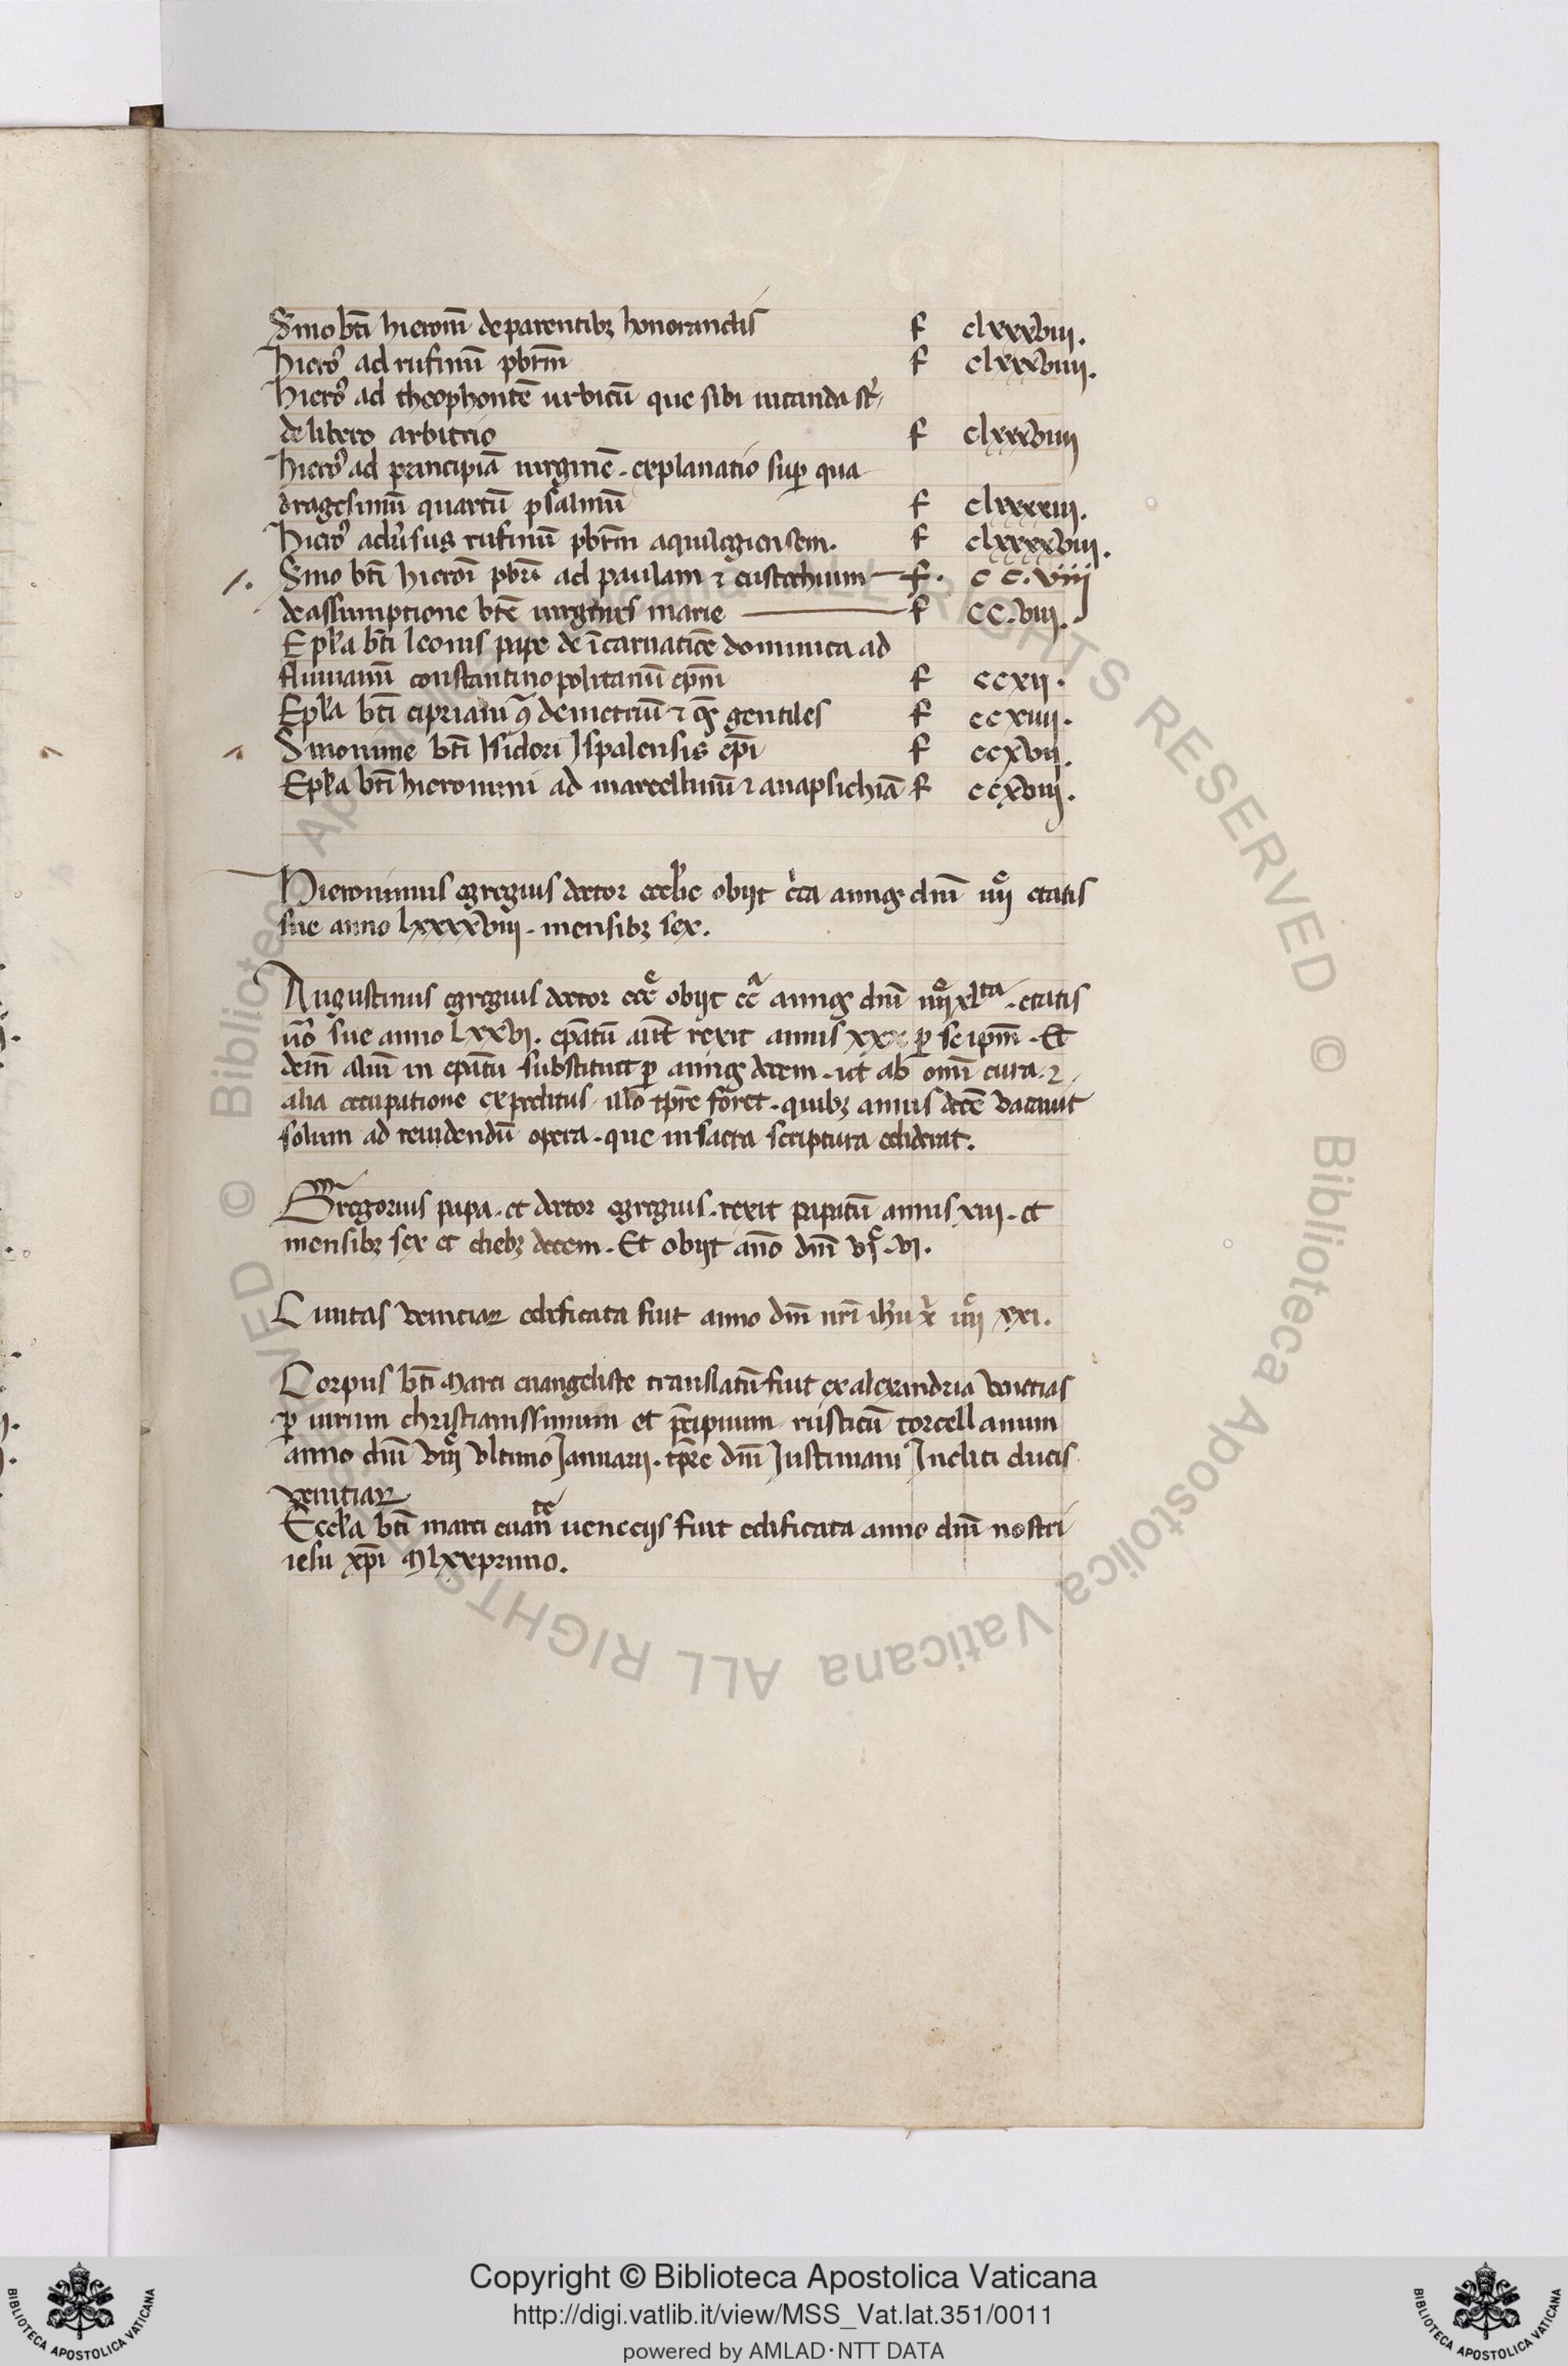 Smo bti hieronī de parentibꝫ honorandis f clxxxviii.
hiero9 ad rufinū pbrm f clxxxviiii.
hiero9 ad thesophontē urbicū que sibi uitanda st
de libero arbitrio f clxxxviiii
hiero9 ad principiā uirginē. explanatio sup̱ qua
dragesimū quartū psalmū f clxxxxiii.
hiero9 adu'sus rufinū pbrm aquilegiensem. f clxxxxviii.
Smo bti hieroī pbri ad paulam ⁊ eustochium f. c c. viii
de assumptione btē uirginis marie f cc. viii.
Epl'a bti leonis pape de īcarnatiōe dominica ad
fluuianū constantinopolitanū ep̄m f ccxii.
Epl'a bti cipriani ꝯ demetriū ⁊ ꝯ gentiles f ccxiiii.
Sinonime bti Isidori Ispalensis ep̄i f ccxvii.
Epl'a bti hieronimi ad marcellinū ⁊ anapsichiā f ccxviii.
Hieronimus egregius doctor eccl'ie obijt c'ca annos dnī iiiiᶜ etatis
sue anno lxxxxviii. mensibꝫ sex.
Augustinus egregius doctor ecc̄e obijt cc̄ annos dnī iiiiᶜxlta. etatis
uº sue anno lxxvi. ep̄atū aut̄ rexit annis xxx ꝑ se ipm̄. Et
dem̄ aliū in ep̄atu substituit ꝑ annos decem. ut ab om̄i cura. ⁊
alia occupatione expeditus illo tp̄re foret. quibꝫ annis decē vacauit
solum ad reuidendū opera. que in sacra scriptura ediderat.
Gregorius papa. et doctor egregius. rexit papatū annis xiii. et
mensibꝫ sex et diebꝫ decem. Et obijt ano dnī vjᶜ. vi.
Ciuitas venitiaꝝ edificata fuit anno dnī nri ihu x' iiiiᶜ xxi.
Corpus bti Marci euangeliste translatū fuit ex alexandria venetias
ꝑ uirum christianissimum et p̄cipuum rusticū torcellanum
anno dnī viiiᶜ vltimo Januarii. tp̄re dnī Justiniani Incliti ducis
venitiaꝝ
Eccl'a bti marci euan̄te uenecijs fuit edificata anno dnī nostri
iesu xp̄i Mlxxprimo.
© Biblioteca Apostolica Vaticana ALL RIGHTS RESERVED © Biblioteca Apostolica Vaticana ALL RIGHTS RESERVED
Copyright © Biblioteca Apostolica Vaticana
http://digi.vatlib.it/view/MSS_Vat.lat.351/0011
powered by AMLAD·NTT DATA
BIBLIOTECA APOSTOLICA VATICANA
BIBLIOTECA APOSTOLICA VATICANA